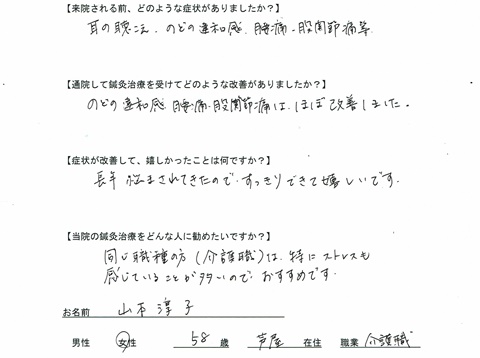 【来院される前、どのような症状がありましたか?】
耳の聴こえ、のどの違和感、腰痛・股関節痛等
【通院して鍼灸治療を受けてどのような改善がありましたか?】
のどの違和感、腰痛、股関節痛は、ほぼ改善しました。
【症状が改善して、嬉しかったことは何ですか?】
長年 悩まされてきたので、すっきりできて嬉しいです。
【当院の鍼灸治療をどんな人に勧めたいですか?】
同じ職種の方(介護職)は、特にストレスも
感じていることが多いので、おすすめです。
お名前 山本淳子
男性 女性 58 歳 芦屋 在住 職業 介護職